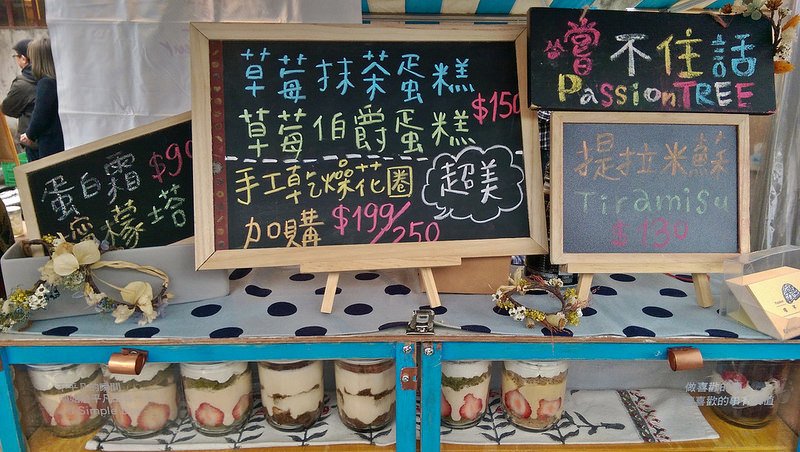 草莓抹茶蛋糕
$150
草莓伯爵蛋糕
手工乾燥花圈
超美
加購 $199/250
嚐不住話
PassionTREE
提拉米蘇
Tiramisu
$130
蛋白霜
檸檬塔
Simple
做喜歡的
喜歡的